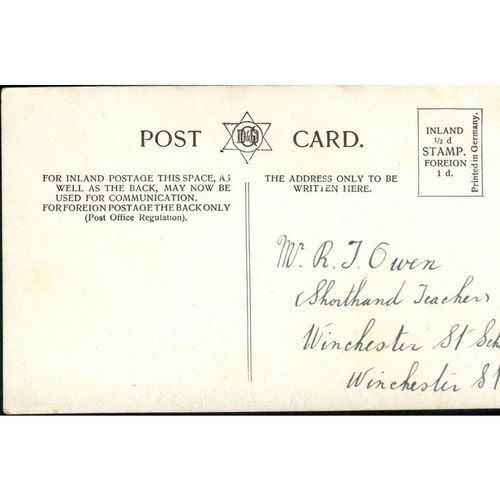 POST D&G CARD.
INLAND
½ d
STAMP.
FOREIGN
1 d.
Printed in Germany.
FOR INLAND POSTAGE THIS SPACE, AS
WELL AS THE BACK, MAY NOW BE
USED FOR COMMUNICATION.
FOR FOREIGN POSTAGE THE BACK ONLY
(Post Office Regulation).
THE ADDRESS ONLY TO BE
WRITTEN HERE.
Mr. R. J. Owen
(Shorthand Teacher)
Winchester St Sch
Winchester St